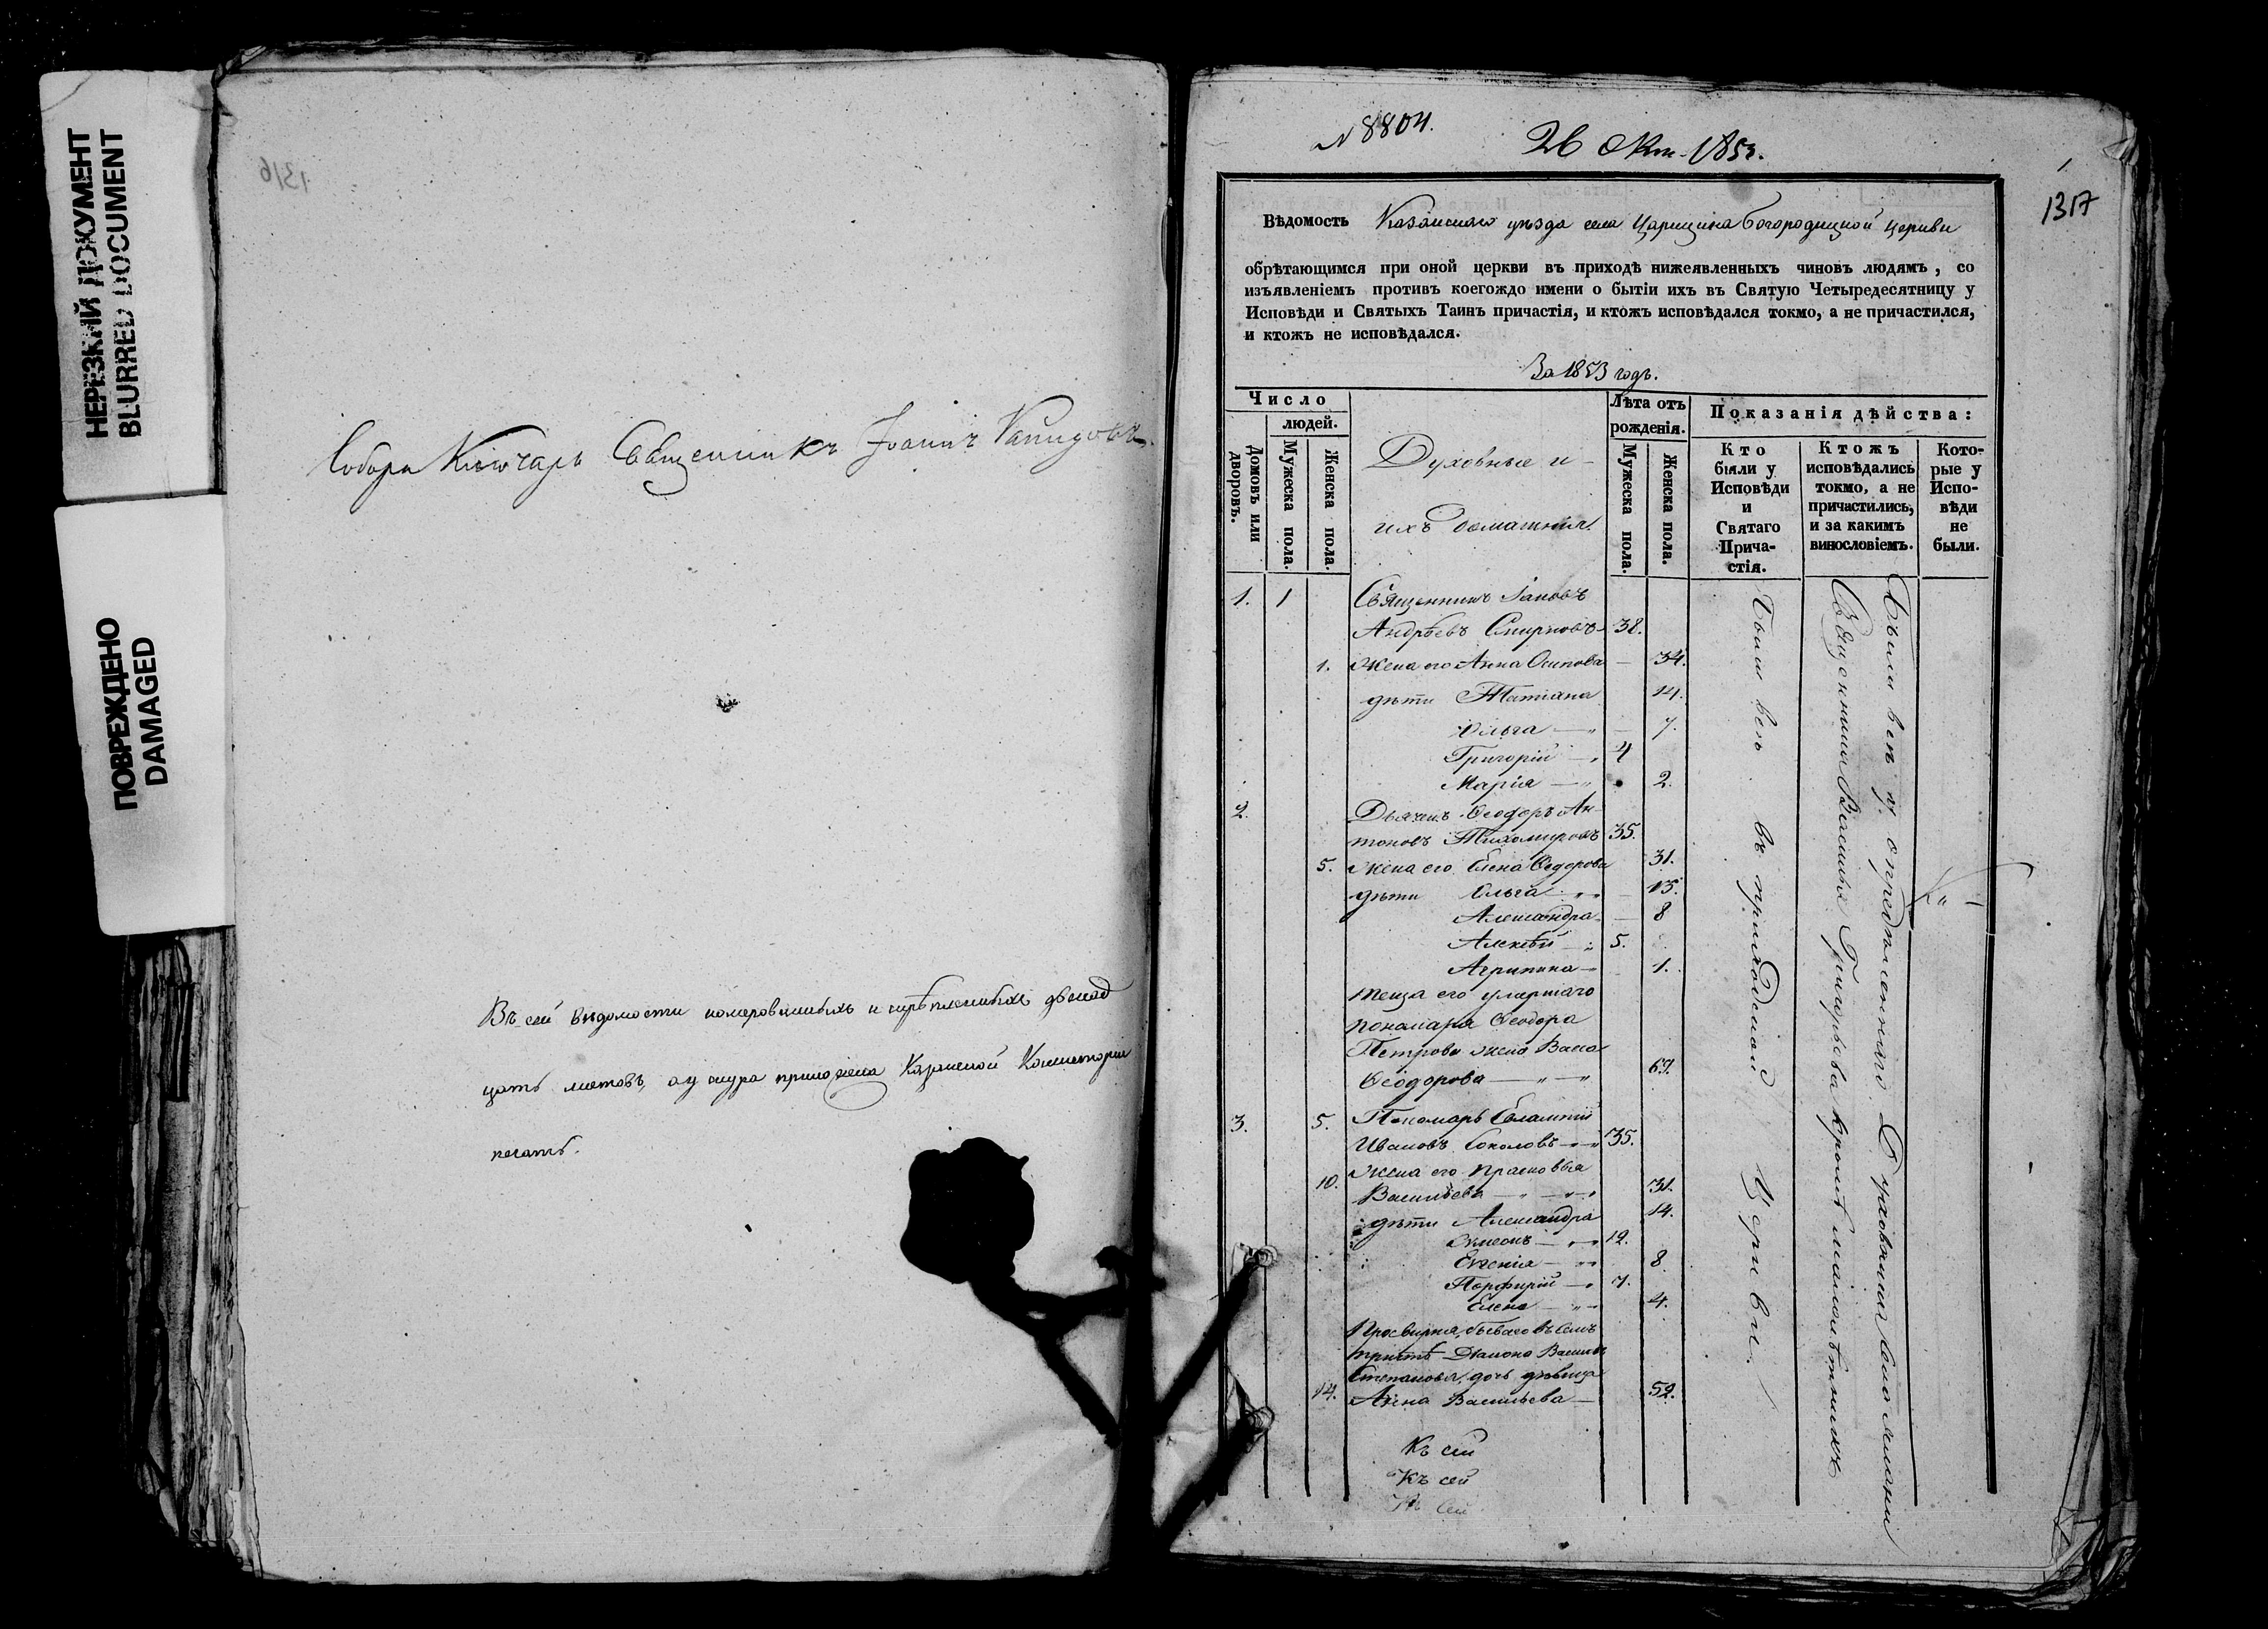 НЕРЕЗКИЙ ДОКУМЕНТ
BLURRED DOCUMENT
ПОВРЕЖДЕНО
DAMAGED
1316
Собора Ключарь Священникъ Іоаннъ
Въ сей вѣдомости номерованныхъ и скрѣпленныхъ двенад
цать листовъ, а у шнура приложена Казанской Консисторіи
печать.
N 8804.
26 Окт. 1853.
1317
Вѣдомость Казанскаго уѣзда села Царицина Богородицкой церкви
обрѣтающимся при оной церкви въ приходѣ нижеявленныхъ чиновъ людямъ, со
изъявленіемъ противъ коегождо имени о бытіи ихъ въ Святую Четыредесятницу у
Исповѣди и Святыхъ Таинъ причастія, и ктожъ исповѣдался токмо, а не причастился,
и ктожъ не исповѣдался.
За 1853 годъ.
Число
людей.
Домовъ или дворовъ.
Мужеска пола.
Женска пола.
Духовные и
ихъ домашнія.
Лѣта отъ рожденія.
Мужеска пола.
Женска пола.
Показанія дѣйства:
Кто были у Исповѣди и Святаго Прича-стія.
Ктожъ исповѣдались токмо, а не причастились, и за какимъ винословіемъ.
Кото-рые у Испо-вѣди не были.
1. 1 Священникъ Іаковъ
Андреевъ Смирновъ 38.
1. Жена его Анна Осипова 34.
дѣти Татіана 14.
Ольга 7.
Григорій 4
Марія 2.
2. Дьячекъ Ѳеодоръ Ан
тоновъ Тихомировъ 35.
5. Жена его Елена Ѳедорова 31.
дѣти Ольга 13.
Александра 8
Алексѣй 5.
Агрипина 1.
теща его умершаго
пономаря Ѳеодора
Петрова жена Васса
Ѳеодорова 67.
3. 5. Пономарь Евлампій
Ивановъ Соколовъ 35.
10. Жена его Прасковья
Васильева 31.
дѣти Александра 14.
Симеонъ 12.
Евгенія 8
Порфирій 7.
Елена 4.
Просвирня, бывшаго въ семъ
причтѣ Діакона Василья
Степанова, дочь дѣвица
14. Анна Васильева 52.
Были всѣ въ приходской Церкви.
Были всѣ у опредѣленнаго Духовнаго
Священника Василья Григорьева кромѣ малолѣтнихъ
Къ сей
Къ сей
Къ сей